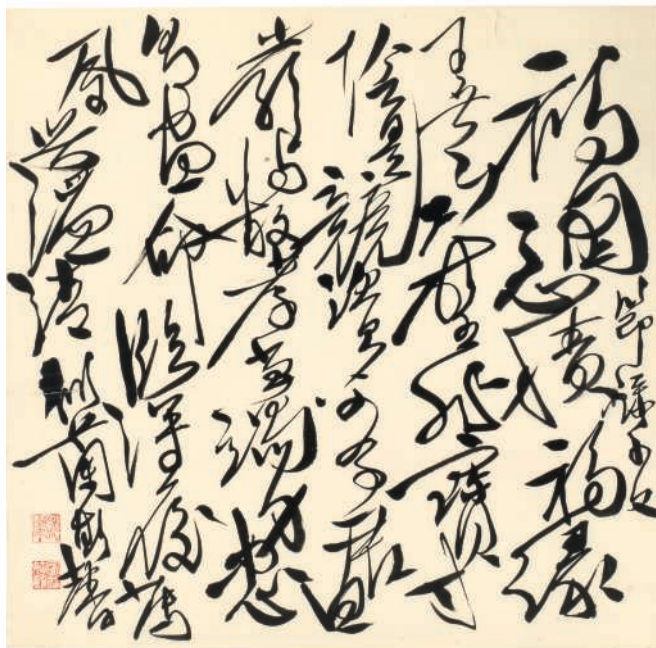 禍因惡積福緣
善慶尺璧非寶寸
陰是競資父事君曰
嚴與敬孝當竭力忠
則盡命臨深履薄
夙興溫凊